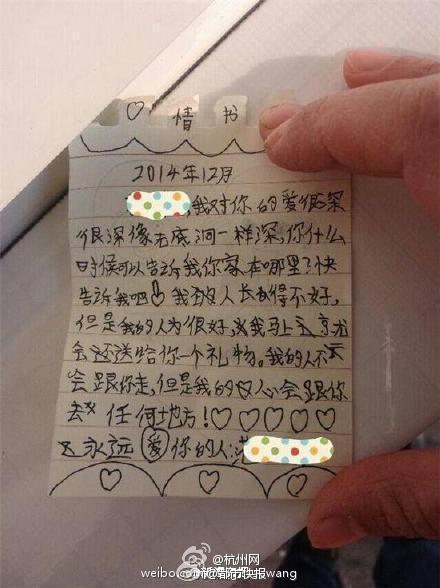 ♡ 情 书
2014年12月
,我对你的爱很深
很深像无底洞一样深,你什么
时候可以告诉我你家在哪里?快
告诉我吧!我人长得不好,
但是我的人为很好,我马上
会还送给你一个礼物。我的人不
会跟你走,但是我的心会跟你
去任何地方!♡♡♡♡♡
永远爱你的人:
@杭州网